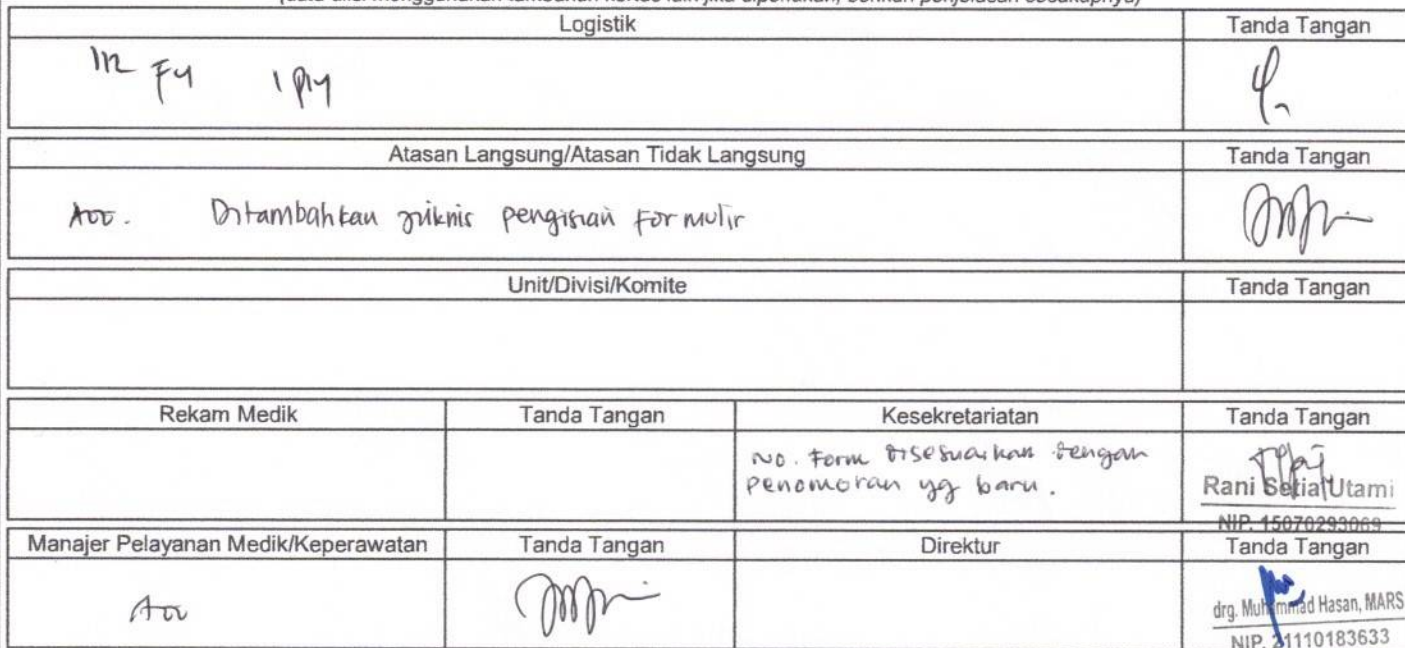 (data diisi menggunakan tambahan kertas lain jika diperlukan, berikan penjelasan secukupnya)
Logistik Tanda Tangan
1/2 F4 1 ply
Atasan Langsung/Atasan Tidak Langsung Tanda Tangan
Acc. Ditambahkan juknis pengisian formulir
Unit/Divisi/Komite Tanda Tangan
Rekam Medik Tanda Tangan Kesekretariatan Tanda Tangan
No. Form disesuaikan dengan
penomoran yg baru.
Rani Setia Utami
NIP. 15070293069
Manajer Pelayanan Medik/Keperawatan Tanda Tangan Direktur Tanda Tangan
Acc
drg. Muhammad Hasan, MARS
NIP. 21110183633